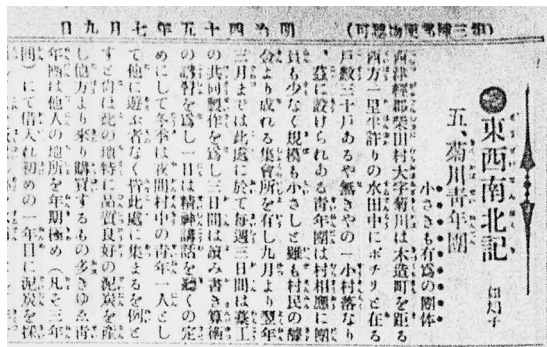 (第三種郵便物認可)
明治四十五年七月九日
東西南北記
五、菊川青年團
小さきも有爲の團体
西津輕郡柴田村大字菊川は木造町を距る
西方一里半許りの水田中にポチリと在る
戸數三十戸あるや無きやの一小村落なり
、茲に設けられある青年團は村相應に團
員も少なく規模も小さしと雖も村民の醵
金より成れる集會所を有し九月より翌年
三月までは此處に於て毎週三日間は藁工
の共同製作を爲し三日間は讀み書き算術
の講習を爲し一日は精神講話を聽くの定
めにして冬季は夜間村中の青年一人とし
て他に遊ぶ者なく皆此處に集まるを例と
すと尚は此の地特に品質良好の泥炭を産
し他方より來り購買するもの多きゆゑ青
年團は他人の地所を年期極め(凡そ三年
間)にて借入れ初めの一年目に泥炭を採